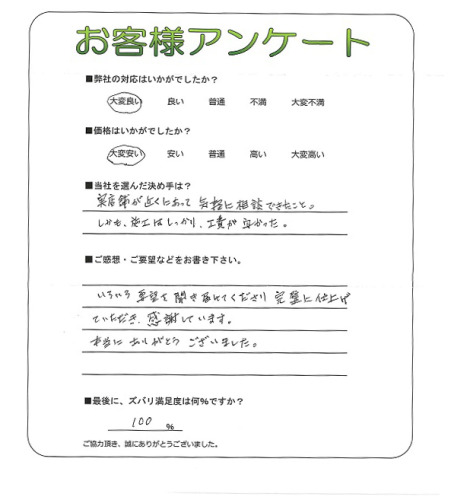 お客様アンケート
■弊社の対応はいかがでしたか？
大変良い 良い 普通 不満 大変不満
■価格はいかがでしたか？
大変安い 安い 普通 高い 大変高い
■当社を選んだ決め手は？
実店舗が近くにあって 気軽に相談できたこと。
しかも、施工はしっかり、工賃が安かった。
■ご感想・ご要望などをお書き下さい。
いろいろ要望を聞き届けてくださり 完璧に仕上げ
ていただき、感謝しています。
本当に ありがとう ございました。
■最後に、ズバリ満足度は何％ですか？
100 %
ご協力頂き、誠にありがとうございました。